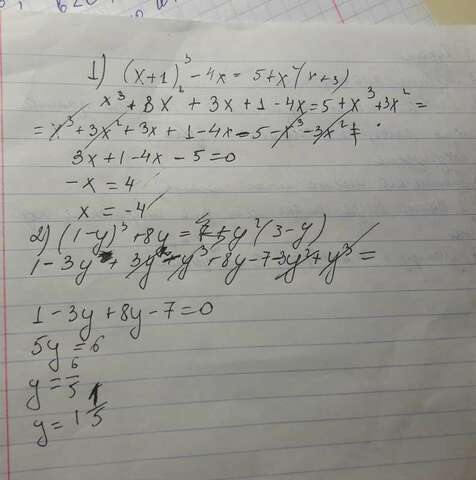 1) (x+1)³ - 4x = 5+x²(x+3)
x³ + 3x² + 3x + 1 - 4x = 5 + x³ + 3x² =
= x³ + 3x² + 3x + 1 - 4x - 5 - x³ - 3x² =
3x + 1 - 4x - 5 = 0
-x = 4
x = -4
2) (1-y)³ + 8y = 7 + y²(3-y)
1 - 3y + 3y² - y³ + 8y - 7 - 3y² + y³ =
1 - 3y + 8y - 7 = 0
5y = 6
y = 6/5
y = 1 1/5